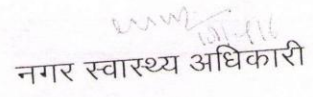 नगर स्वास्थ्य अधिकारी